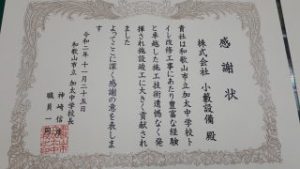 感謝状
株式会社 小籔設備 殿
貴社は和歌山市立加太中学校ト
イレ改修工事にあたり豊富な経験
と卓越した施工技術遺憾なく発
揮され施設竣工に大きく貢献され
ました
よってここに深く感謝の意を表しま
す
令和二年十一月二十五日
和歌山市立加太中学校長
神崎信彦
職員一同